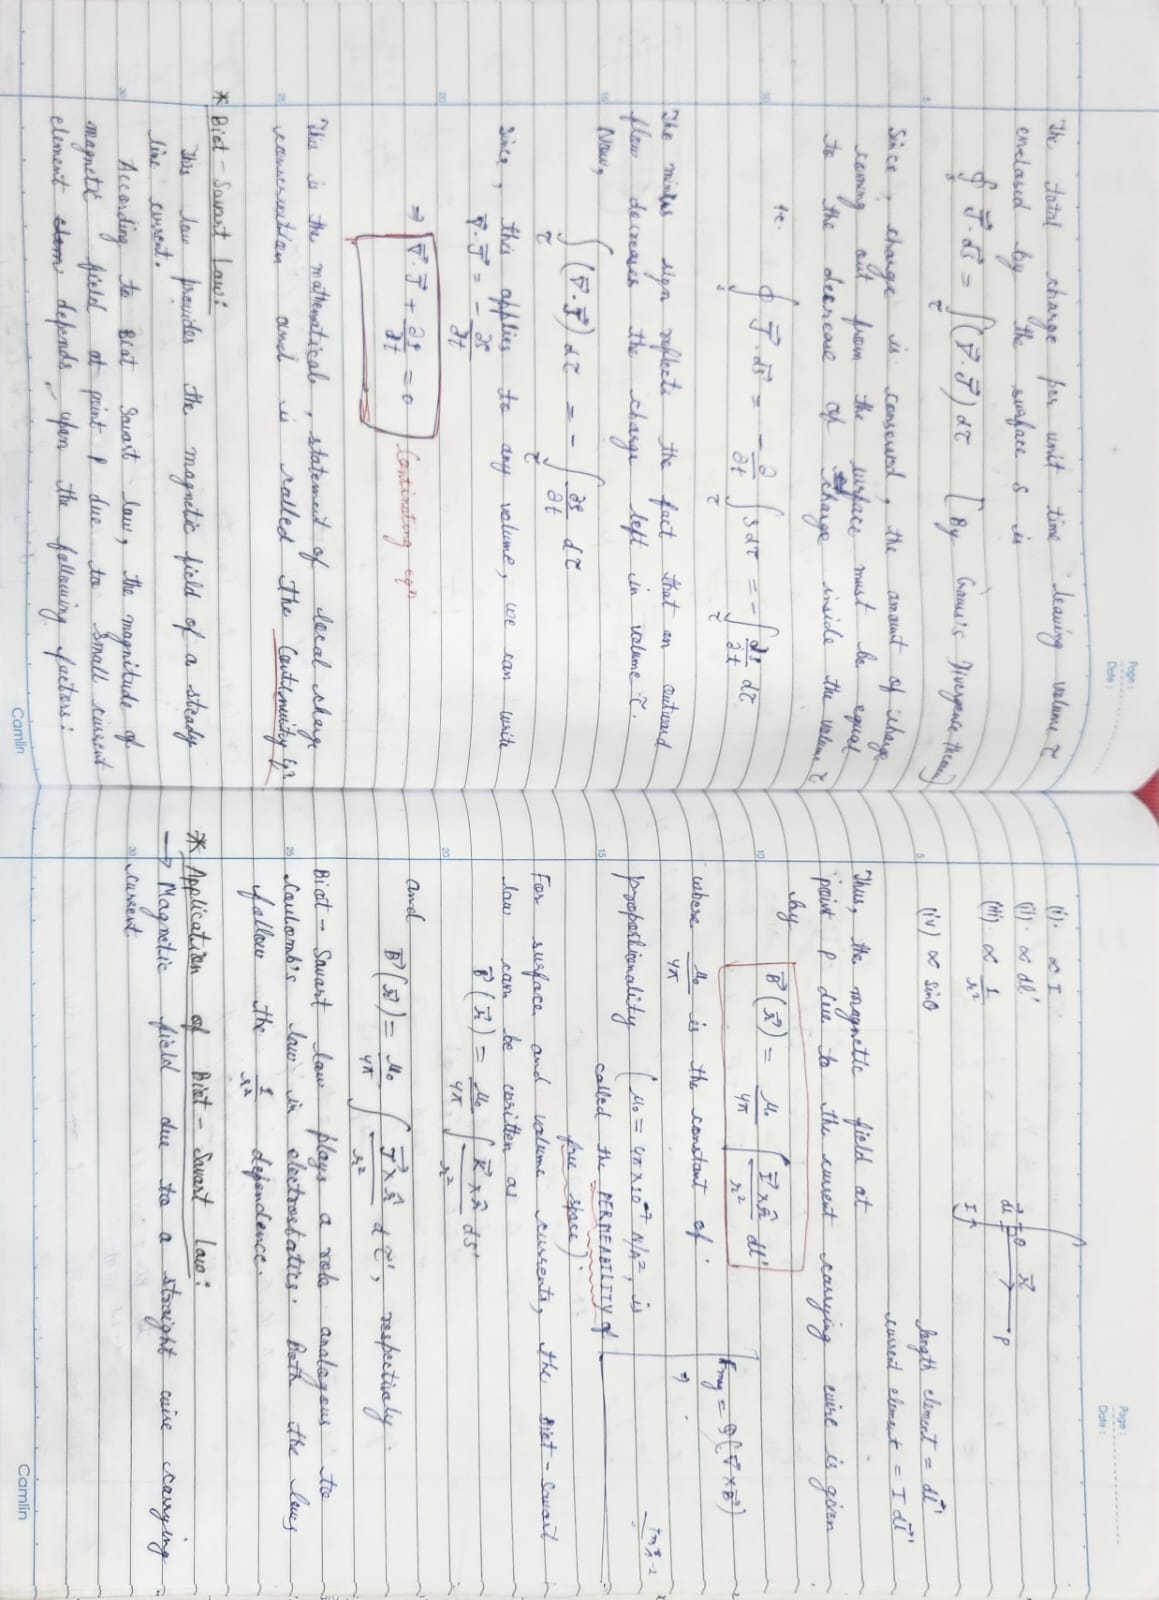 Page :
Date :
The total charge per unit time leaving volume τ
enclosed by the surface S is
∮_S J⃗·ds⃗ = ∫_τ (∇⃗·J⃗) dτ [By Gauss's Divergence theorem]
Since, charge is conserved, the amount of charge
coming out from the surface must be equal
to the decrease of charge inside the volume τ
i.e. ∮_S J⃗·ds⃗ = -∂/∂t ∫_τ ρ dτ = -∫_τ ∂ρ/∂t dτ
The minus sign reflects the fact that an outward
flow decreases the charge left in volume τ.
Now,
∫_τ (∇⃗·J⃗) dτ = -∫_τ ∂ρ/∂t dτ
Since, this applies to any volume, we can write
∇⃗·J⃗ = -∂ρ/∂t
⇒ ∇⃗·J⃗ + ∂ρ/∂t = 0
This is the mathematical statement of local charge
conservation and is called the Continuity Eq
* Biot-Savart Law:
This law provides the magnetic field of a steady
line current.
According to Biot Savart law, the magnitude of
magnetic field at point P due to small current
element depends upon the following factors:
Camlin
Page :
Date :
(i). ∝ I
(ii). ∝ dl'
(iii). ∝ 1/r²
(iv) ∝ sinθ
dl θ r⃗ P
I
length element = dl⃗'
current element = I dl⃗'
Thus, the magnetic field at
point P due to the current carrying wire is given
by
B⃗(r⃗) = μ₀/4π ∫ I⃗×r̂/r² dl'
where μ₀/4π is the constant of
proportionality (μ₀ = 4π×10⁻⁷ N/A², is
called the PERMEABILITY of
free space).
F_mag = Q(V⃗×B⃗)
⇒
For surface and volume currents, the Biot-Savart
law can be written as
B⃗(r⃗) = μ₀/4π ∫ K⃗×r̂/r² ds'
and B⃗(r⃗) = μ₀/4π ∫ J⃗×r̂/r² dτ', respectively.
Biot-Savart law plays a role analogous to
Coulomb's law in electrostatics. Both the laws
follow the 1/r² dependence.
* Application of Biot-Savart Law:
→ Magnetic field due to a straight wire carrying
current.
Camlin